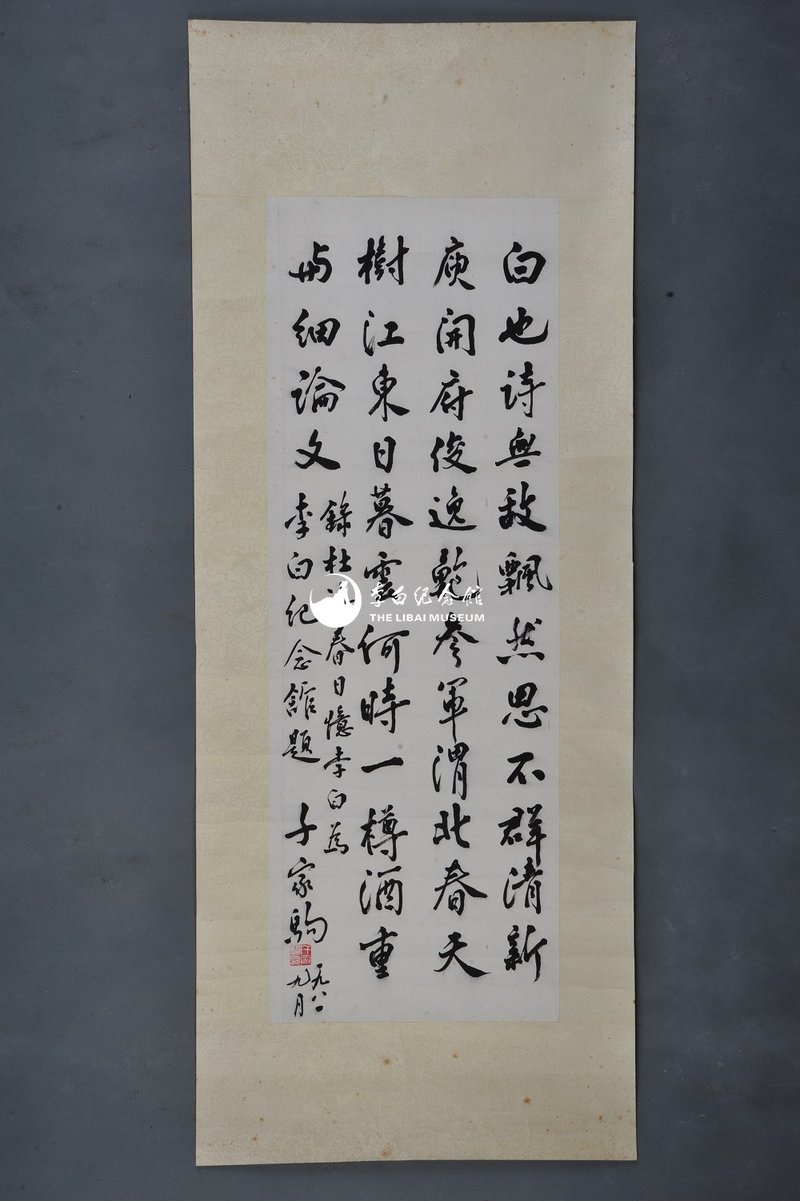 白也詩無敌飄然思不群清新
庾開府俊逸鮑參軍渭北春天
樹江東日暮雲何時一樽酒重
與細論文
錄杜 春日憶李白為
李白纪念館題
家駒
一九八一
九月
李白纪念館
THE LIBAI MUSEUM